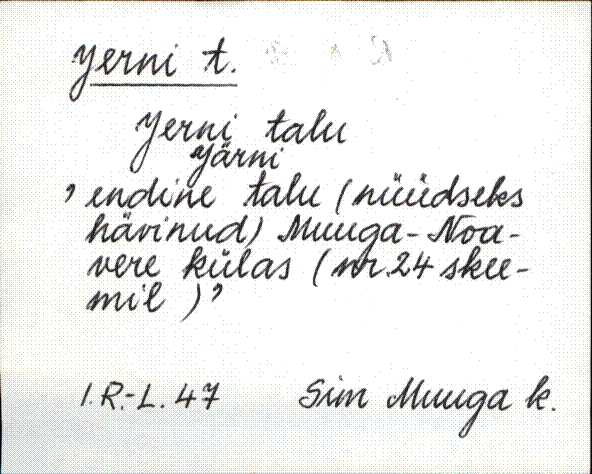 Yerni t.
Yerni talu
Yärni
’ endine talu (nüüdseks
hävinud) Muuga-Noa-
vere külas (nr. 24 skee-
mil )’
I. R.-L. 47 Sim Muuga k.